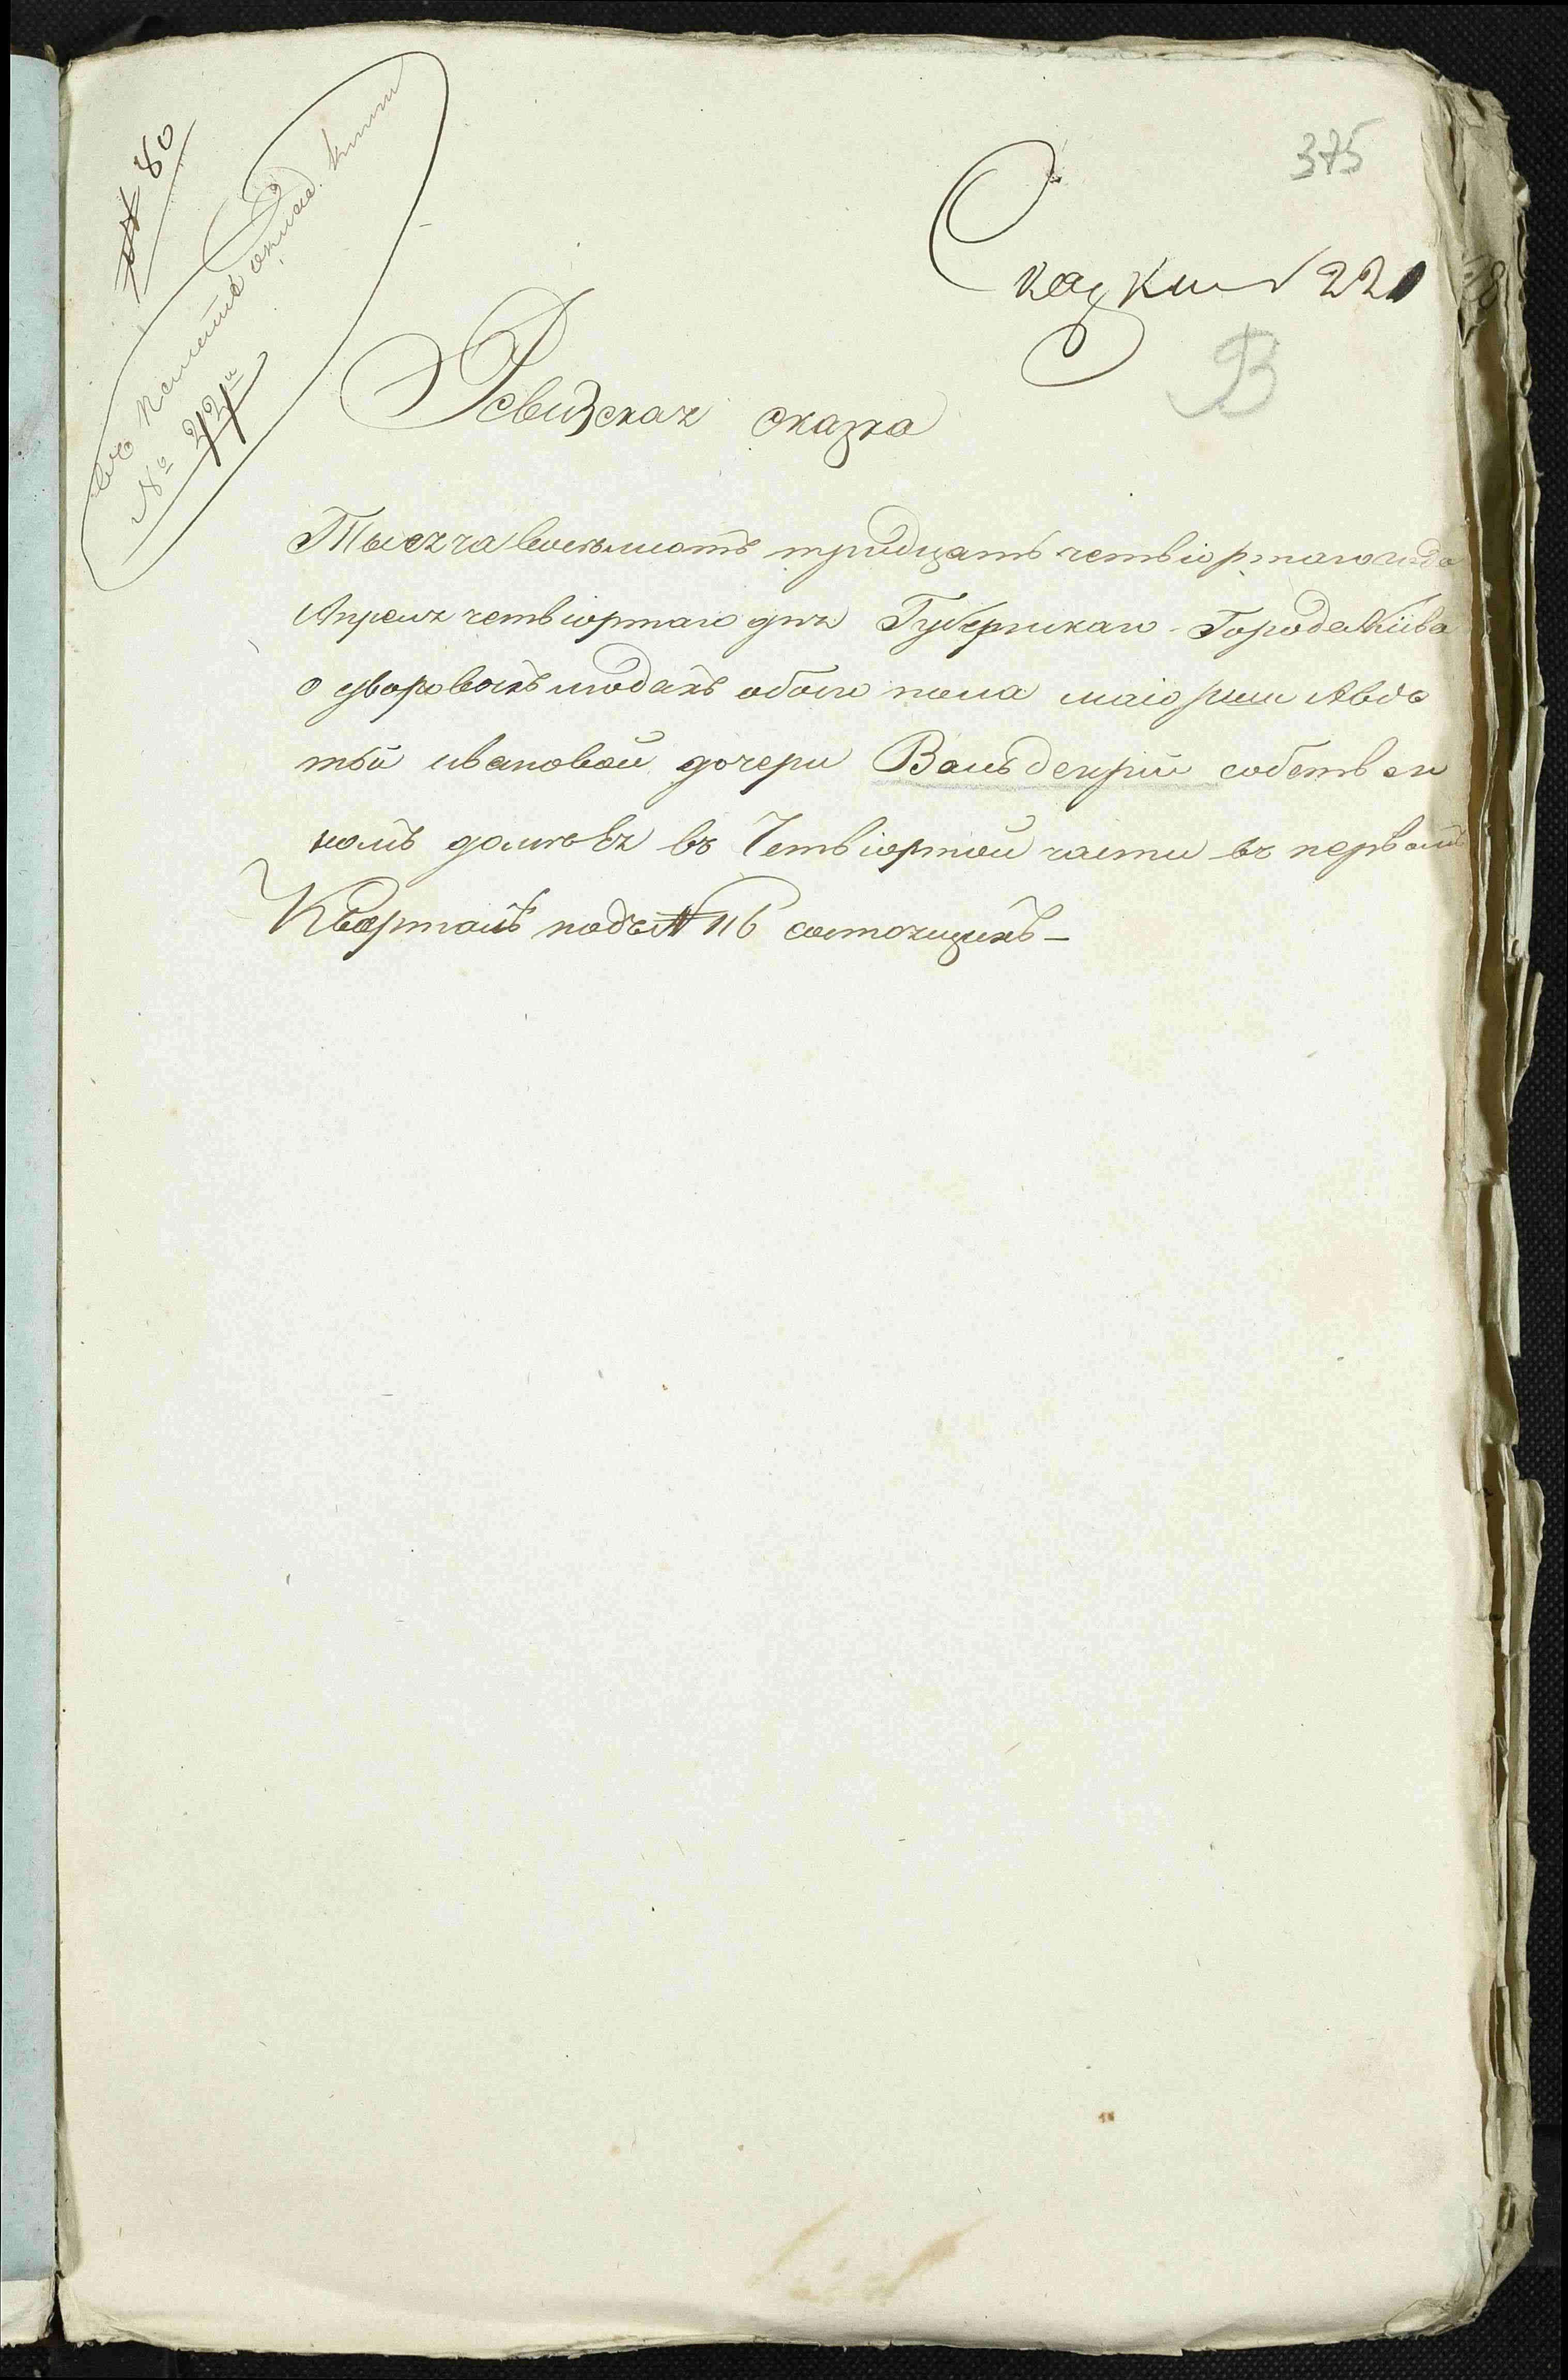 № 80
въ
№ 22й
375
Сказки № 221
В
Ревизская сказка
Тысяча восемьсотъ тридцать четвіортаго года
Апреля четвіортаго дня Губернскаго Города Кіива
о дворовыхъ людяхъ обоего пола маіорши Авдо
тьи ивановой дочери Вальденрій собствен
номъ доме Ея въ Четвіортой части въ первомъ
Квартале подъ № 116 состоящихъ —